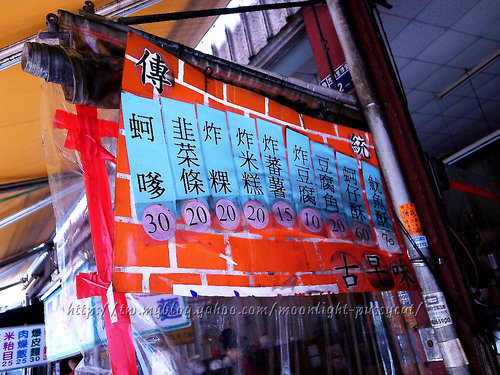 傳統
蚵嗲 30
韭菜條 20
炸粿 20
炸米糕 20
炸蕃薯 15
炸豆腐 10
豆腐魚 20
蚵仔酥 60
魷魚酥
古早味
http://tw.myblog.yahoo.com/moonlight-pussycat/
爆皮麵 30
肉燥飯 25
米粉目 25